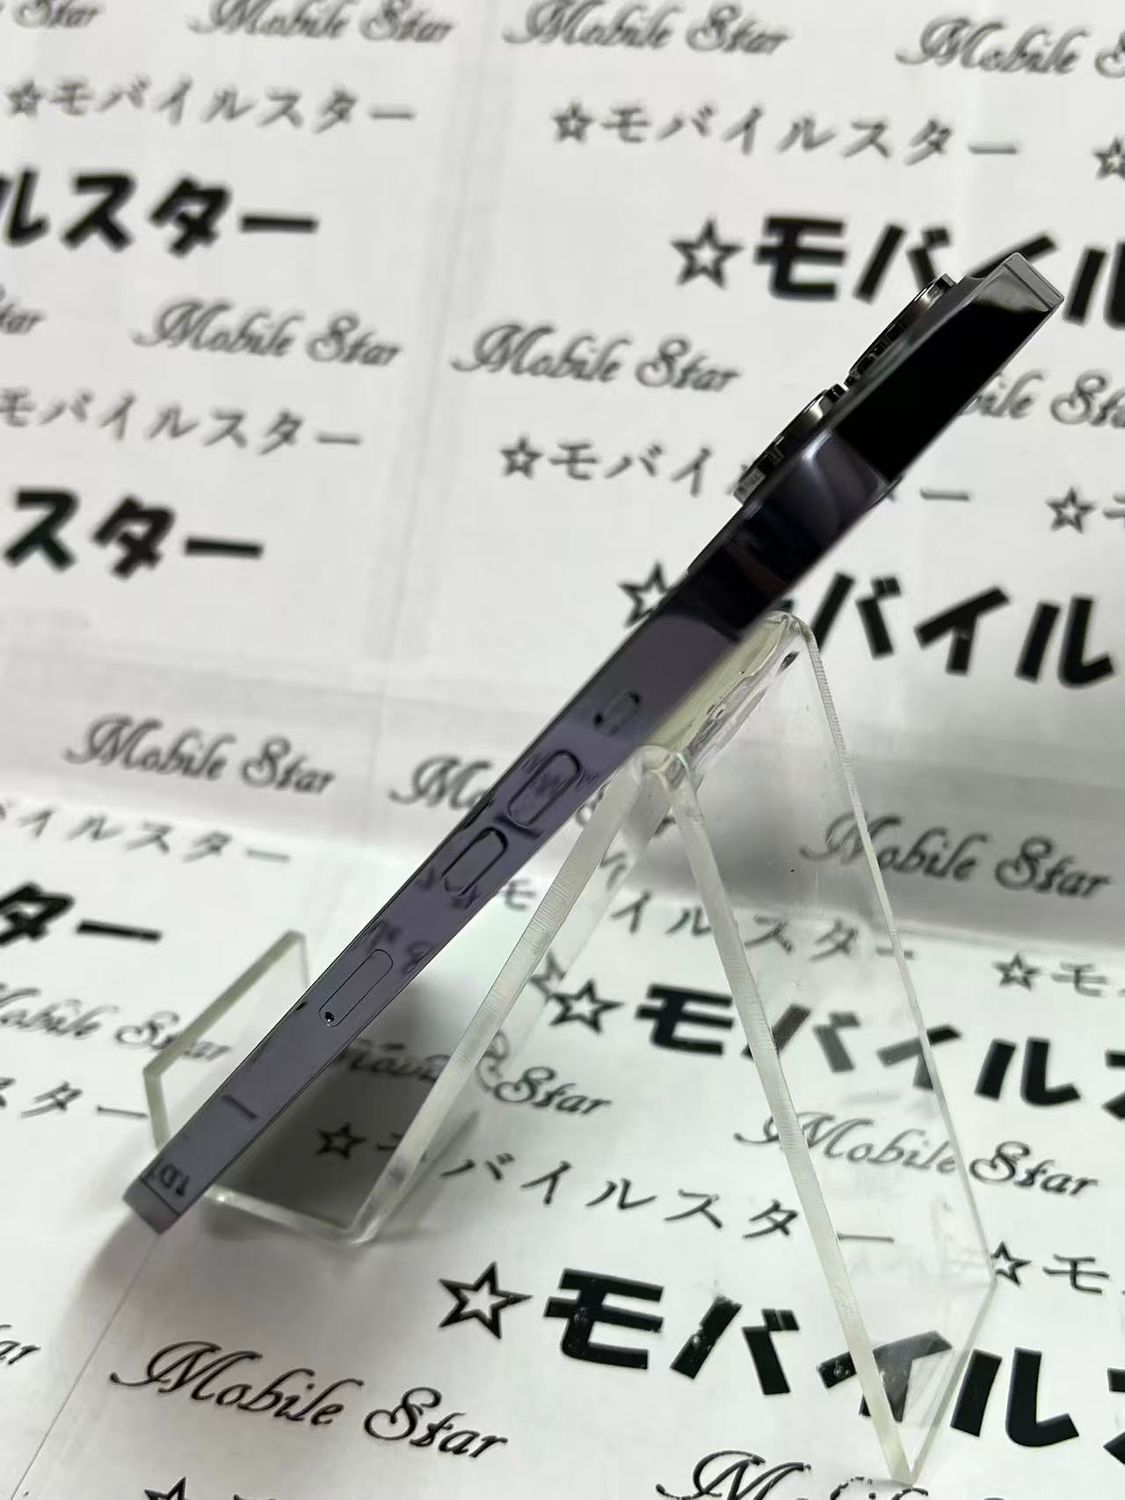 Star
Mobile Star
Mobile Star
Mobile
☆モバイルスター
☆モバイルスター
☆
ルスター
☆モバイル
Star
Mobile Star
Mobile Star
bile Sta
モバイルスター
☆モバイ
ー
☆モ
スター
☆
バイル
Mobile Star
Mo
Mobile Star
バイルスター
モ
イルスター
☆モ
ター
☆モバイルス
Mobile Star
Star
Mobile Star
スター
☆モ
バイルスター
☆モ
☆モバイル
ar
Mobile Star
Mo